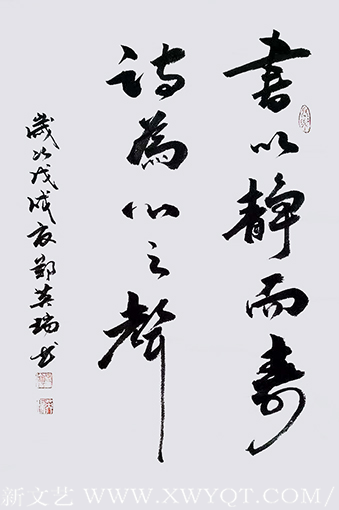 書以靜而壽
詩為心之聲
歲次戊戌夜鄭英瑞書
新文艺 WWW.XWYQT.COM/